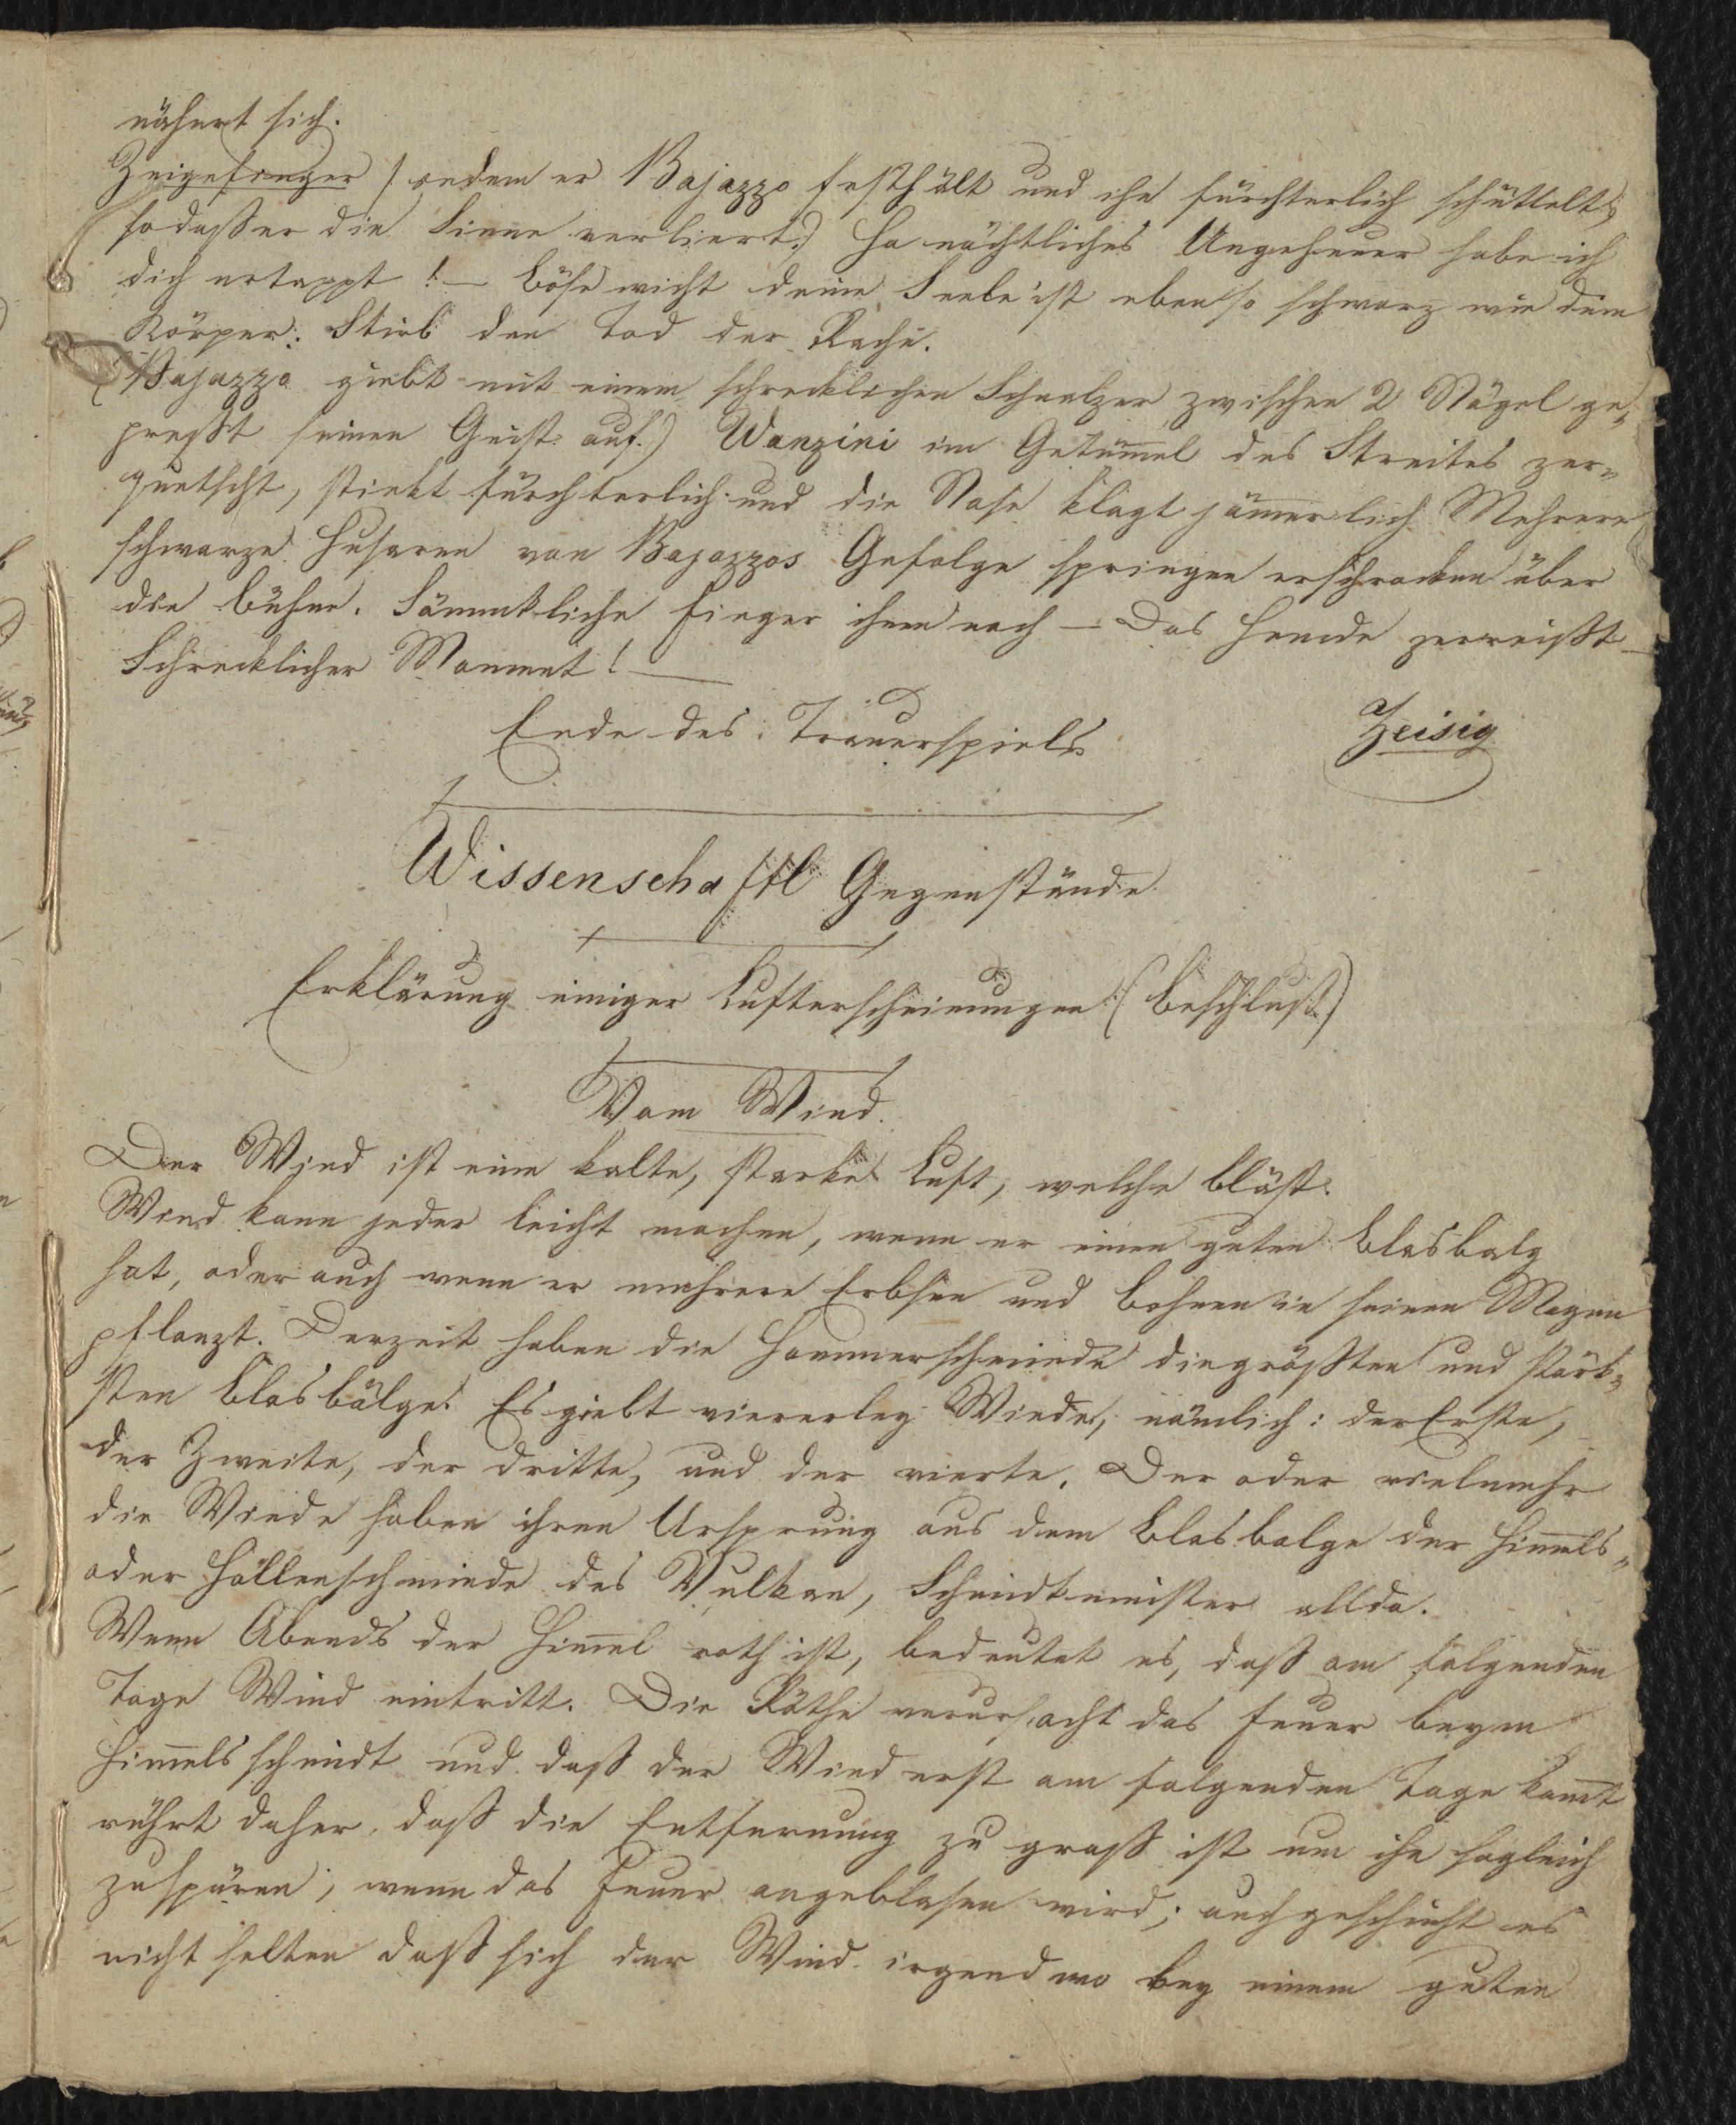 nähert sich.
Zeigefinger (indem er Bajazzo festhält und ihn fürchterlich schüttelt,
sodaßer die Sinne verliert.) Ha nächtliches Ungeheuer habe ich
dich ertappt! — Bösewicht deine Seele ist ebenso schwarz wie dein
Körper: Stirb den Tod der Rache.
(Bajazzo giebt mit einem schrecklichen Schnalzer zwischen 2 Nägel ge„
preßt seinen Geist auf.) Wanzini im Getüm̄el des Streites zer„
quetscht, stinkt fürchterlich und die Nase klagt jäm̄erlich Mehrere
schwarze Husaren von Bajazzos Gefolge springen erschrocken über
die Bühne. Sämmtliche Finger ihnen nach — Das Hemde zerreißt —
Schrecklicher Moment! —
Ende des Trauerspiels
Zeisig
Wissenschaftl Gegenstände
Erklärung einiger Lufterscheinungen (Beschluß)
Vom Wind.
Der Wind ist eine kalte, starke Luft, welche bläst.
Wind kann jeder leicht machen, wenn er einen guten Blasbalg
hat, oder auch wenn er mehrere Erbsen und Bohnen in seinen Magen
pflanzt. Derzeit haben die Hammerschmiede diegrößten und stärk„
sten Blasbälge. Es giebt viererley Winde, nämlich: derErste,
der Zweite, der dritte, und der vierte. Der oder vielmehr
die Winde haben ihren Ursprung aus dem Blasbalge der Him̄els„
oder Höllenschmiede des Vulkan, Schmidtmeister allda.
Wenn Abends der Him̄el roth ist, bedeutet es, daß am folgenden
Tage Wind eintritt. Die Röthe verursacht das Feuer beym
Him̄elsschmidt und daß der Wind erst am folgenden Tage kom̄t
rührt daher, daß die Entfernung zu groß ist um ihn sogleich
zuspüren, wenn das Feuer angeblasen wird; auch geschieht es
nicht selten daß sich der Wind irgendwo bey einem guten